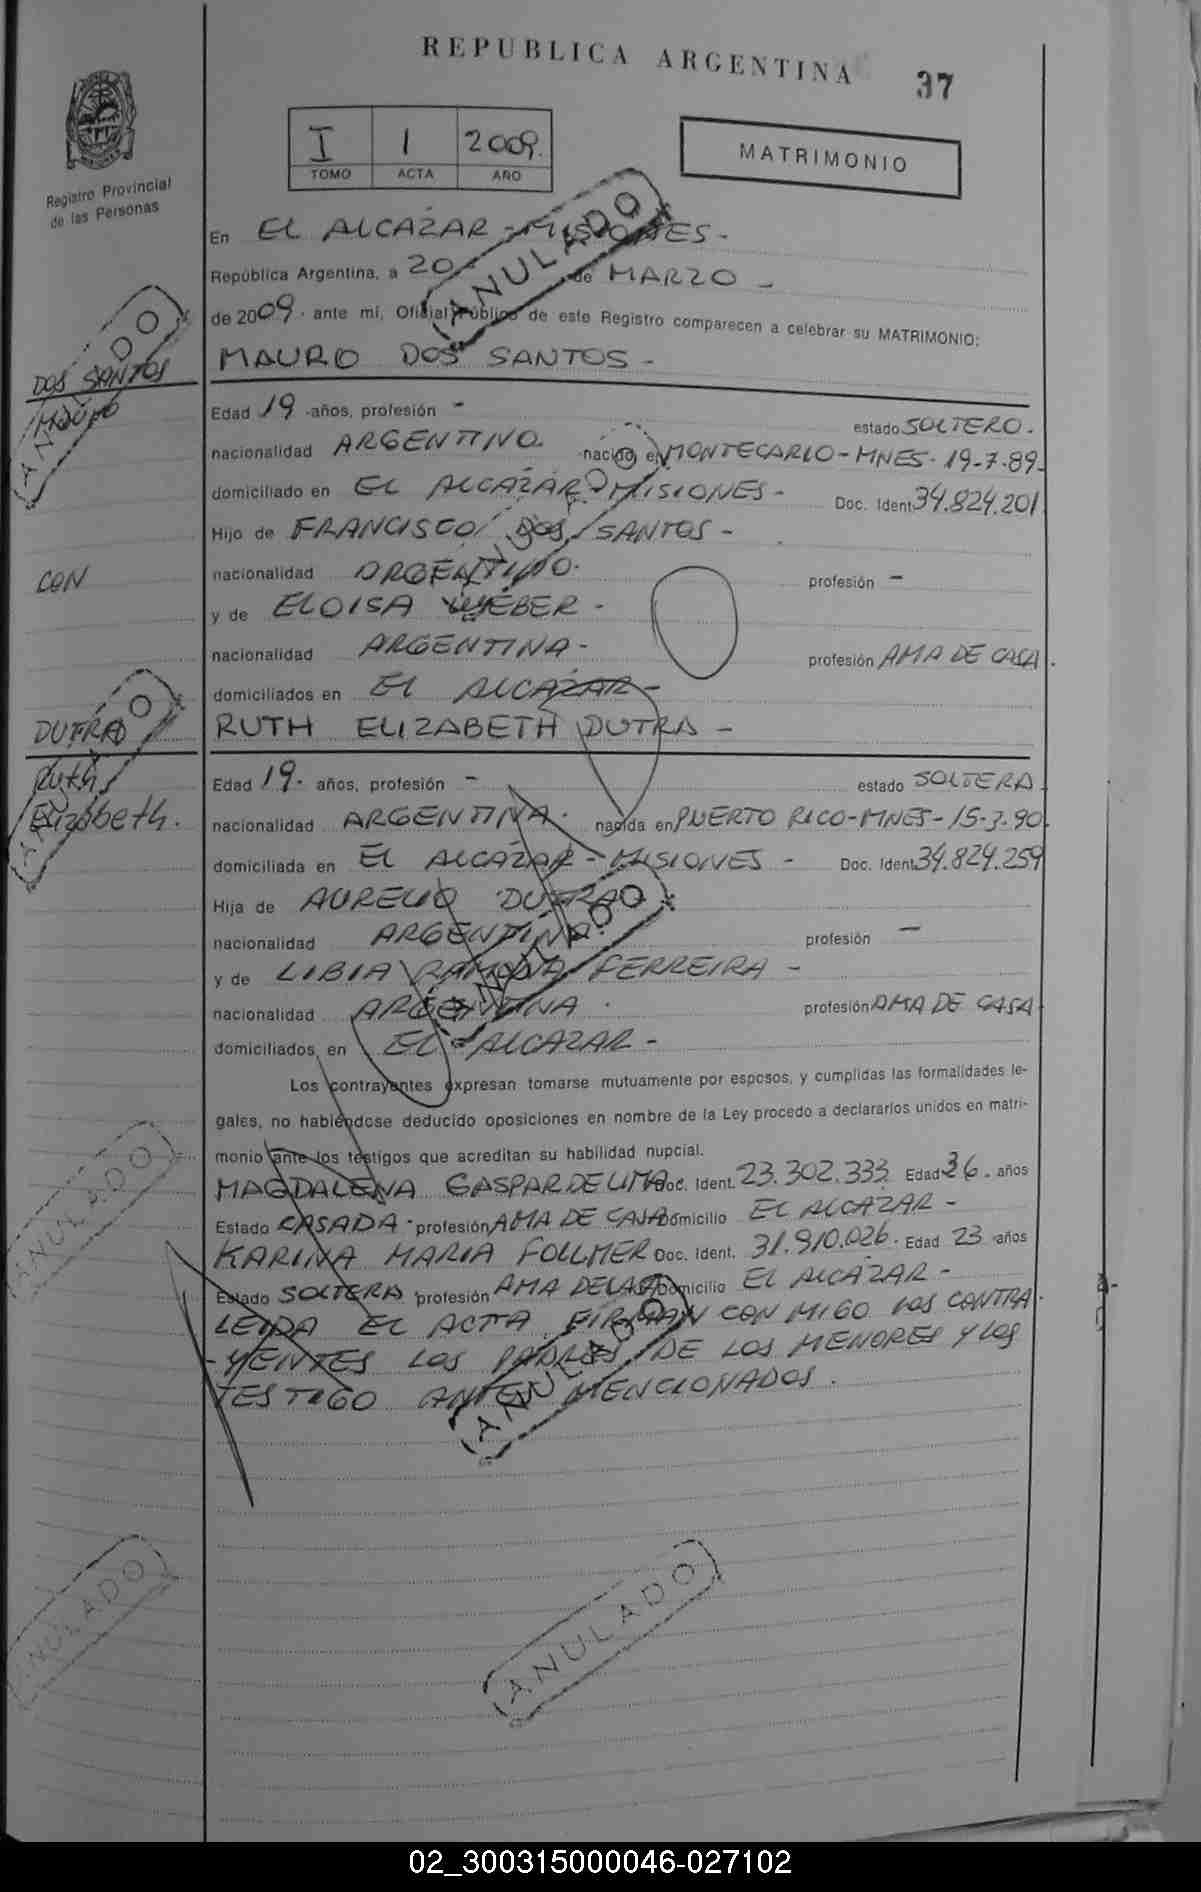 REPUBLICA ARGENTINA 37
Registro Provincial
de las Personas
I 1 2009.
TOMO ACTA AÑO
MATRIMONIO
En EL ALCAZAR - MISIONES -
República Argentina, a 20 - de MARZO -
de 2009. ante mí, Oficial Público de este Registro comparecen a celebrar su MATRIMONIO:
MAURO DOS SANTOS -
DOS SANTOS
Mauro
Edad 19 -años, profesión - estado SOLTERO.
nacionalidad ARGENTINO. nacido en MONTECARLO - MNES. 19-7-89-
domiciliado en EL ALCAZAR - MISIONES - Doc. Ident 34.824.201
Hijo de FRANCISCO DOS SANTOS -
nacionalidad ARGENTINO. profesión -
CON
y de ELOISA WEBER -
nacionalidad ARGENTINA - profesión AMA DE CASA.
domiciliados en EL ALCAZAR -
RUTH ELIZABETH DUTRA -
DUTRA
Ruth
Elizabeth.
Edad 19. años, profesión - estado SOLTERA
nacionalidad ARGENTINA. nacida en PUERTO RICO - MNES - 15-3-90.
domiciliada en EL ALCAZAR - MISIONES - Doc. Ident 34.824.259
Hija de AURELIO DUTRA
nacionalidad ARGENTINA. profesión -
y de LIBIA RAMONA FERREIRA -
nacionalidad ARGENTINA. profesión AMA DE CASA
domiciliados en EL ALCAZAR -
Los contrayentes expresan tomarse mutuamente por esposos, y cumplidas las formalidades le-
gales, no habiéndose deducido oposiciones en nombre de la Ley procedo a declararlos unidos en matri-
monio ante los testigos que acreditan su habilidad nupcial.
MAGDALENA GASPARDELIMA Doc. Ident. 23.302.333 Edad 36. años
Estado CASADA - profesión AMA DE CASA Domicilio EL ALCAZAR -
KARINA MARIA FOLLMER Doc. Ident. 31.910.026. Edad 23 años
Estado SOLTERA profesión AMA DE CASA Domicilio EL ALCAZAR -
LEIDA EL ACTA, FIRMAN CON MIGO LOS CONTRA
-YENTES LOS PADRES DE LOS MENORES Y LOS
TESTIGO ANTES MENCIONADOS.
ANULADO
ANULADO
ANULADO
ANULADO
ANULADO
ANULADO
ANULADO
ANULADO
ANULADO
02_300315000046-027102